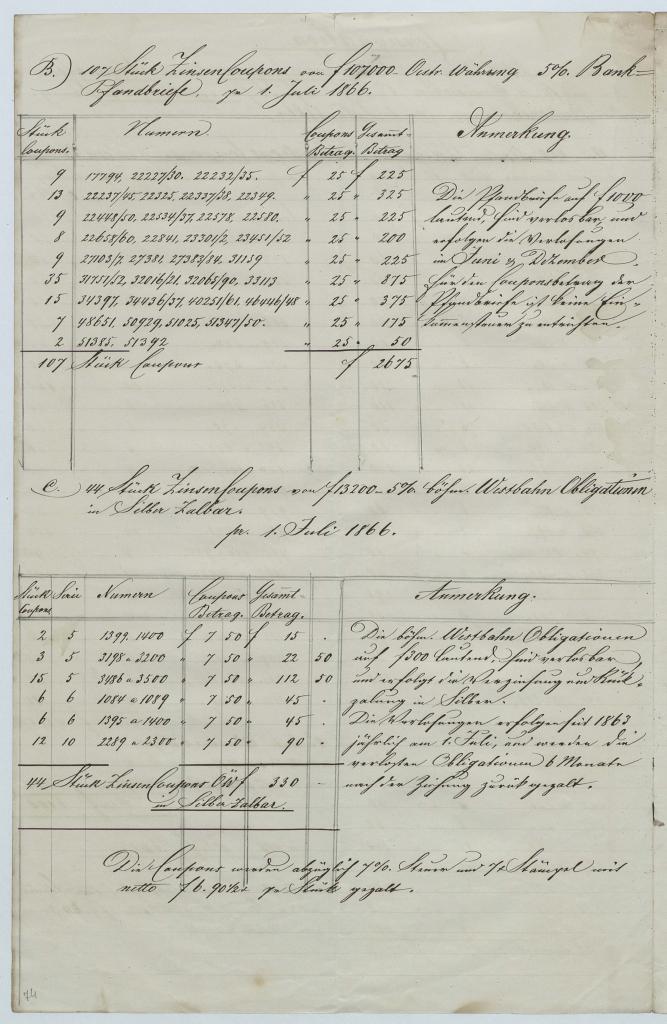 B.) 107 Stück Zinsen Coupons von f 107000 - Oestr. Währung 5%. Bank=
Pfandbriefe, pr 1. Juli 1866.
Stück Coupons. Numern Coupons Betrag. Gesammt- Betrag Anmerkung.
9 17794, 22227/30. 22232/35. f 25 f 225
13 22237/45, 22325, 22337/38, 22349. " 25 " 325
9 22448/50, 22534/37, 22578, 22580. " 25 " 225
8 22658/60, 22841, 23301/2, 23451/52 " 25 " 200
9 27103/7, 27381, 27383/84, 31159 " 25 " 225
35 31751/52, 32016/21, 32065/90, 33113 " 25 " 875
15 34397, 34436/37, 40251/61, 46446/48 " 25 " 375
7 48651, 50929, 51025, 51347/50. " 25 " 175
2 51385, 51392 " 25 " 50
107 Stück Coupons f 2675
Die Pfandbriefe auf f 1000
lautend, sind verlosbar, und
erfolgen die Verlosungen
im Juni & Dezember.
Für den Couponsbetrag der
Pfandbriefe ist keine Ein=
kommensteuer zu entrichten.
C.) 44 Stück Zinsen Coupons von f 13200 - 5% böhm. Westbahn Obligationen
in Silber zalbar.
pr. 1. Juli 1866.
Stück Coupons Serie Numern Coupons Betrag. Gesammt- Betrag. Anmerkung.
2 5 1399, 1400 f 7 50 f 15 .
3 5 3198 a 3200 " 7 50 " 22 50
15 5 3486 a 3500 " 7 50 " 112 50
6 6 1084 a 1089 " 7 50 " 45 .
6 6 1395 a 1400 " 7 50 " 45 .
12 10 2289 a 2300 " 7 50 " 90 .
44 Stück Zinsen Coupons ÖW f 330 -
in Silber zalbar.
Die böhm. Westbahn Obligationen
auf f 300 lautend, sind verlosbar,
und erfolgt die Verzinsung und Rück=
zalung in Silber.
Die Verlosungen erfolgen seit 1863
jährlich am 1. Juli, und werden die
verlosten Obligationen 6 Monate
nach der Ziehung zurückgezalt.
Die Coupons werden abzüglich 7%. Steuer und 7x Stämpel mit
netto f 6. 90½x pr Stück gezalt.